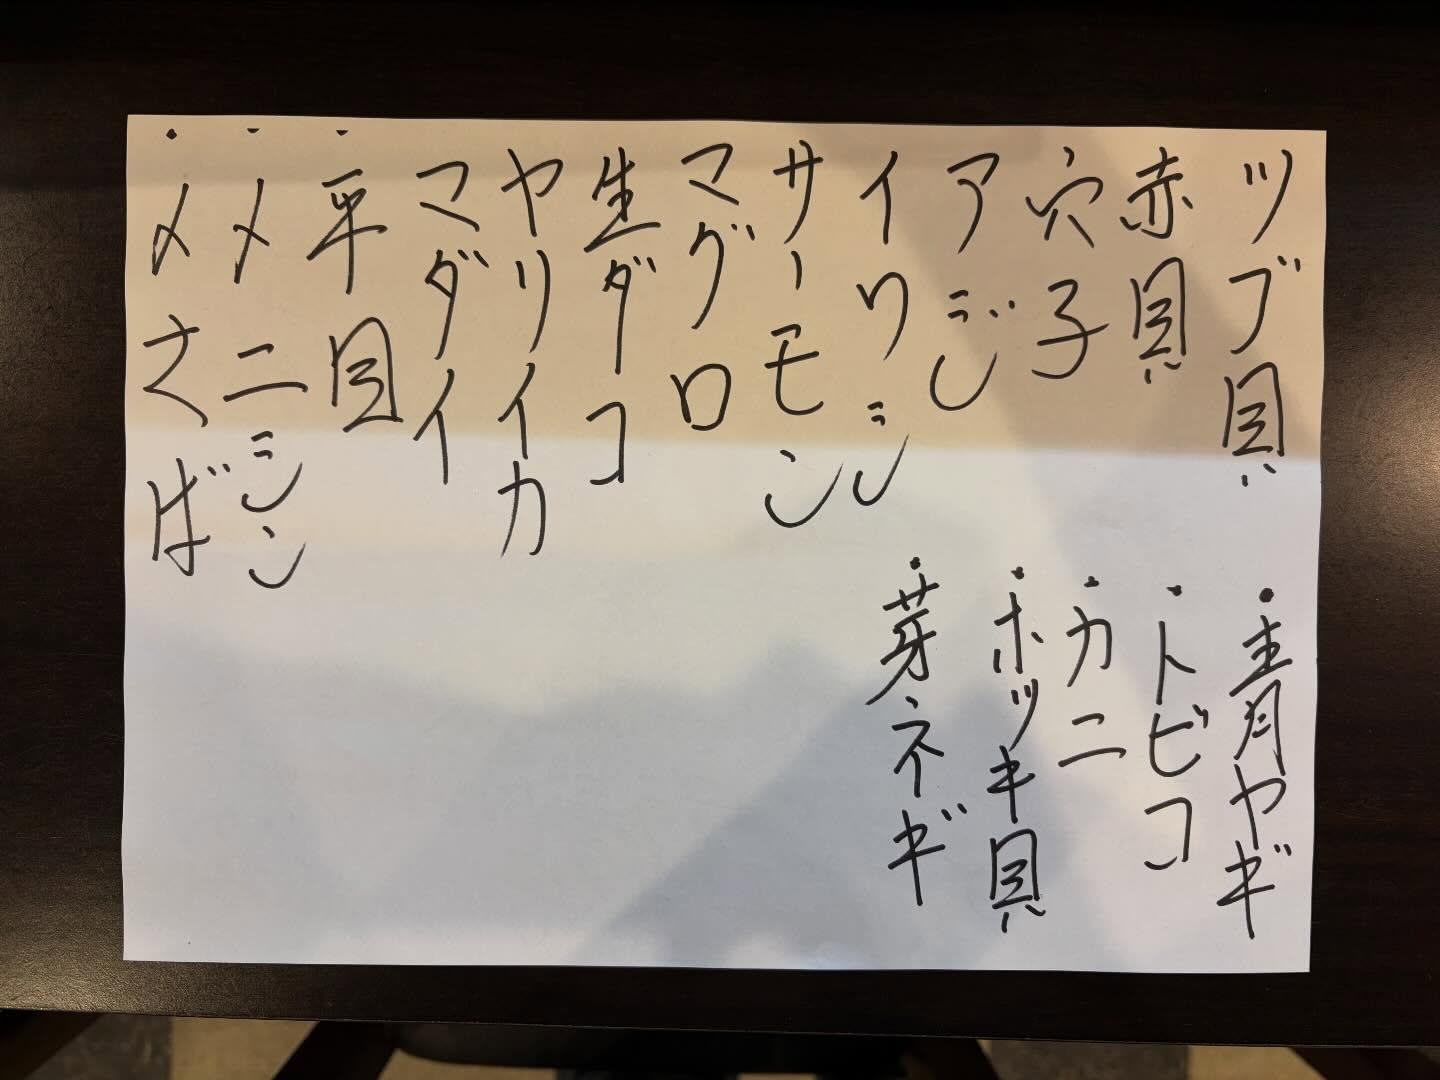 ツブ貝
赤貝
穴子
アジ
イワシ
サーモン
マグロ
生ダコ
ヤリイカ
マダイ
・平目
・〆ニシン
・〆さば
・青ヤギ
・トビコ
・カニ
・ホッキ貝
・芽ネギ